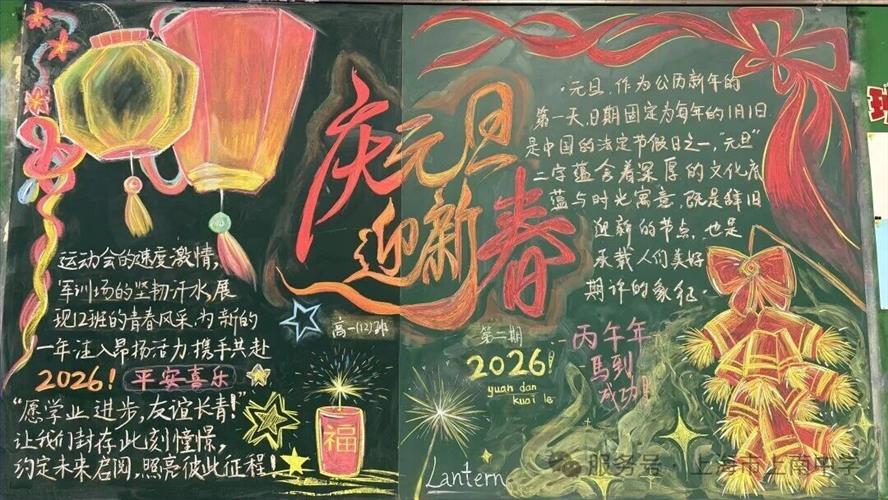 庆元旦
迎新春
运动会的速度激情，
军训场的坚韧汗水，展
现12班的青春风采，为新的
一年注入昂扬活力，携手共赴
2026！平安喜乐
“愿学业进步，友谊长青！”
让我们封存此刻憧憬，
约定未来启阅，照亮彼此征程！
福
高一(12)班
·元旦，作为公历新年的
第一天，日期固定为每年的1月1日
是中国的法定节假日之一，“元旦”
二字蕴含着深厚的文化底
蕴与时光寓意，既是辞旧
迎新的节点，也是
承载人们美好
期许的象征。
第二期
2026！
yuan dan
kuai le
丙午年
馬到
成功！
Lantern
服务号·上海市上南中学